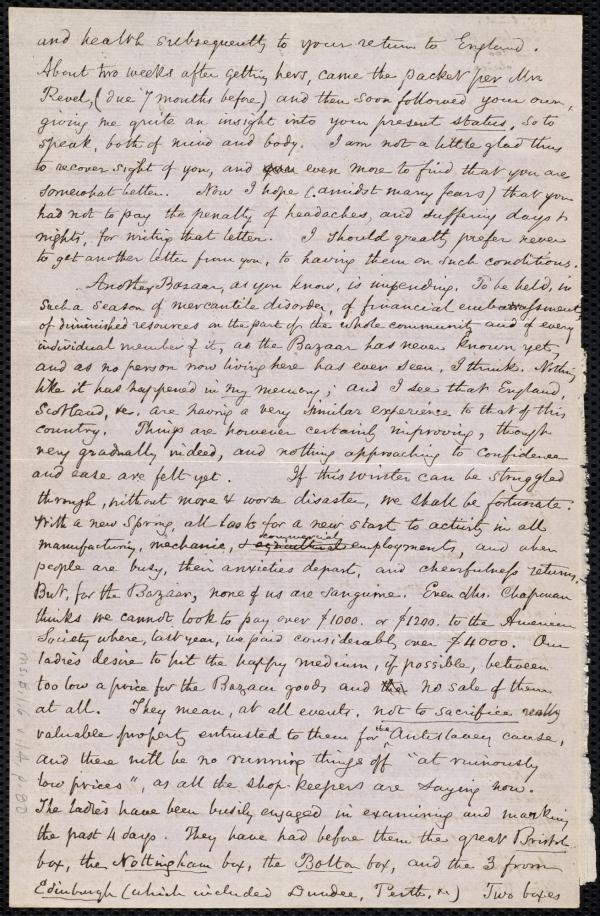 and health subsequently to your return to England.
About two weeks after getting hers, came the packet per Mrs
Revel, (due 7 months before) and then soon followed your own,
giving me quite an insight into your present status, so to
speak, both of mind and body. I am not a little glad thus
to recover sight of you, and you even more to find that you are
somewhat better. Now I hope (amidst many fears) that you
had not to pay the penalty of headaches, and suffering days &
nights, for writing that letter. I should greatly prefer never
to get another letter from you, to having them on such conditions.
Another Bazaar, as you know, is impending. To be held, in
such a season of mercantile disorder, of financial embarrassment,
of diminished resources on the part of the whole community and of every
individual member of it, as the Bazaar has never known yet,
and as no person now living here has ever seen, I think. Nothing
like it has happened in my memory; and I see that England,
Scotland, &c. are having a very similar experience to that of this
country. Things are however certainly improving, though
very gradually indeed, and nothing approaching to confidence
and ease are felt yet. If this winter can be struggled
through, without more & worse disaster, we shall be fortunate.
With a new Spring, all look for a new start to activity in all
commercial
manufacturing, mechanic, & agricultural employments, and when
people are busy, their anxieties depart, and cheerfulness returns.
But, for the Bazaar, none of us are sanguine. Even Mrs. Chapman
thinks we cannot look to pay over $1000. or $1200. to the American
Society where, last year, we paid considerably over $4000. Our
ladies desire to hit the happy medium, if possible, between
too low a price for the Bazaar goods and the no sale of them
at all. They mean, at all events, not to sacrifice really
valuable property entrusted to them for the Antislavery cause,
and there will be no running things off "at ruinously
low prices", as all the shop-keepers are saying now.
The ladies have been busily engaged in examining and marking
the past 4 days. They have had before them the great Bristol
box, the Nottingham box, the Bolton box, and the 3 from
Edinburgh (which included Dundee, Perth, &c) Two boxes
Ms.B.1.6 v.14 p.80